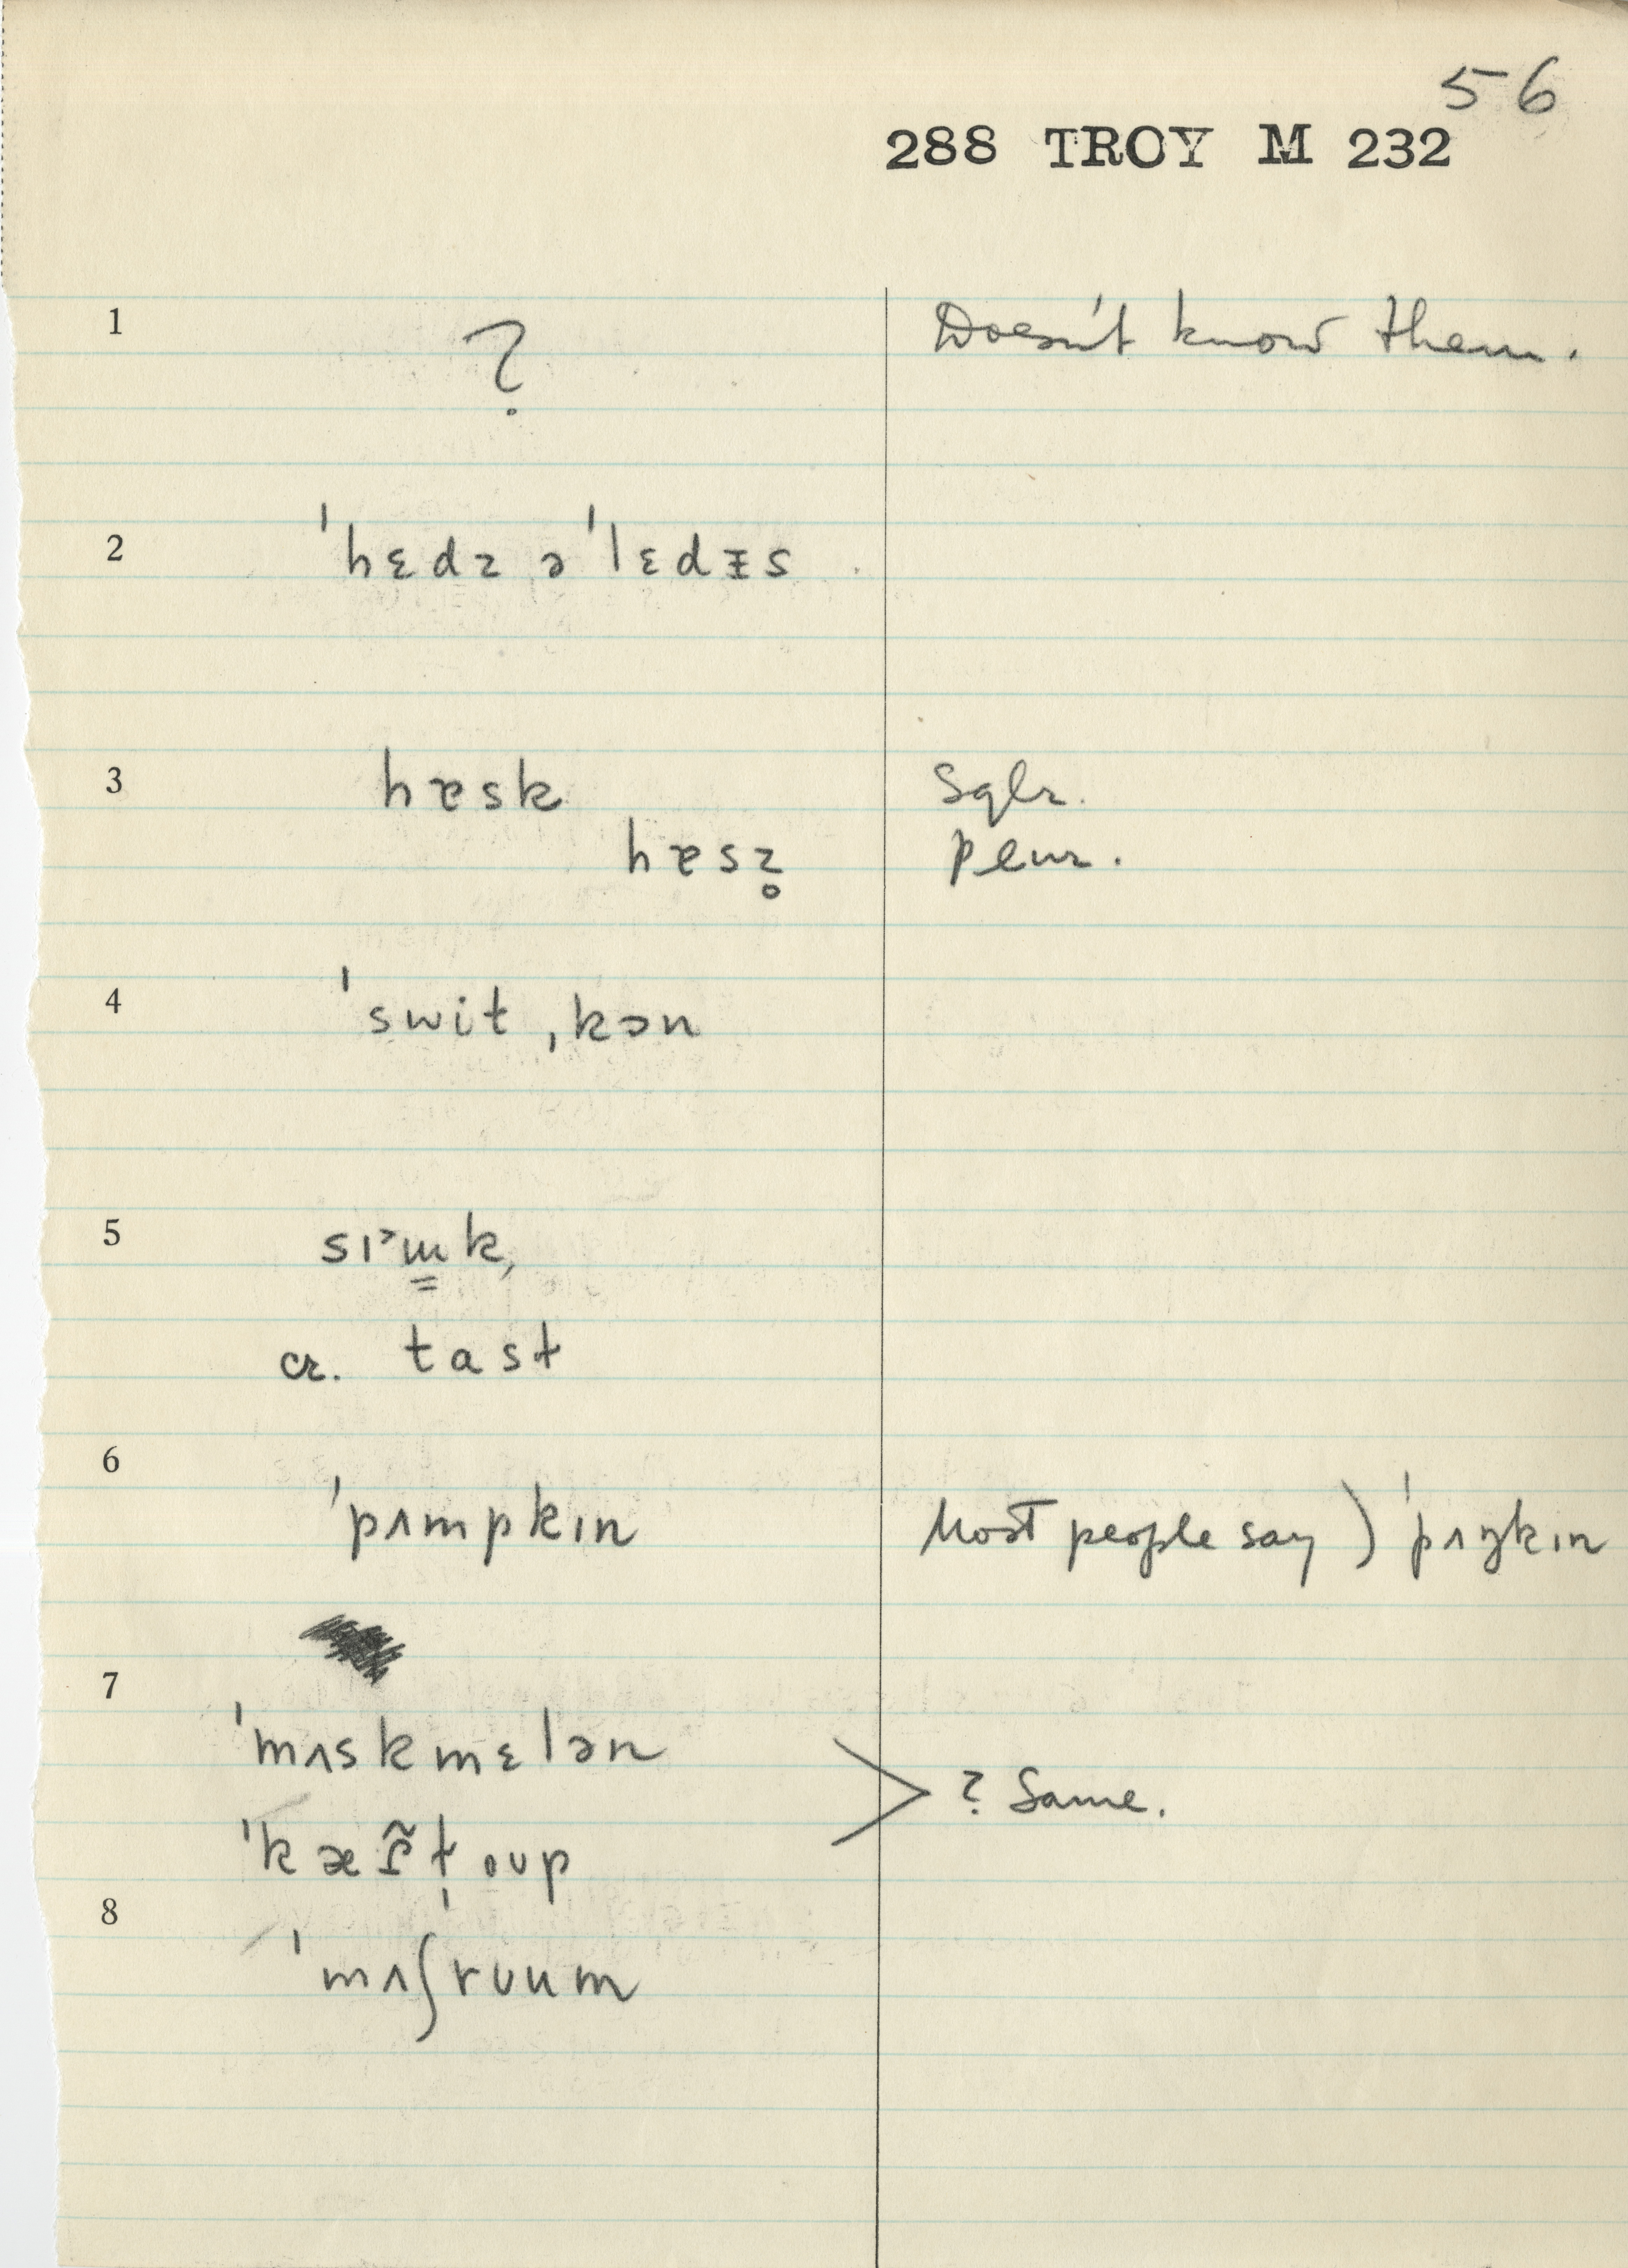 56
288 TROY M 232
1 ? Doesn't know them.
2 ˈhɛdz əˈlɛdᵻs
3 hɐsk Sglr.
hɐsz̥ Plur.
4 ˈswit ˌkɔn
5 k,
cr. tast
6 ˈpʌmpkɪn Most people say ) ˈpʌŋkɪn
7
ˈmʌskmɛlən
> ? Same.
ˈkæ
8
ˈmʌʃrʊum